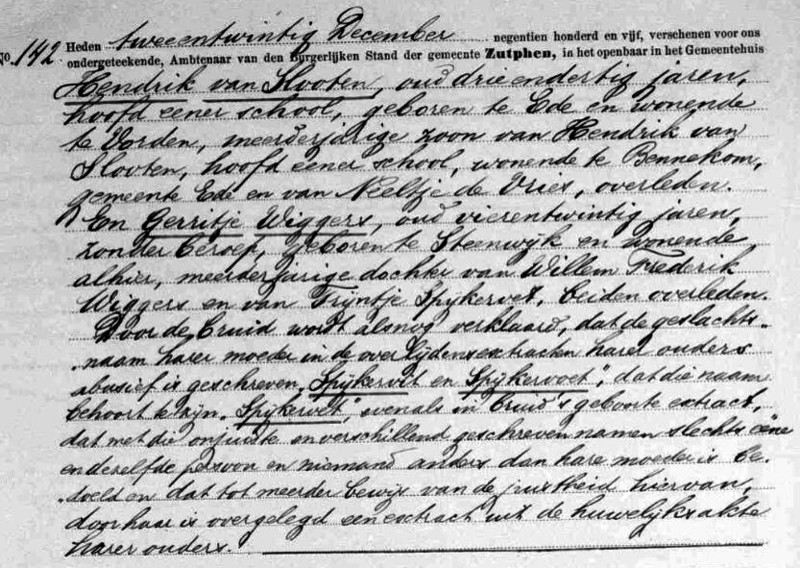 No. 142 Heden tweeentwintig December negentien honderd en vijf, verschenen voor ons
ondergeteekende, Ambtenaar van den Burgerlijken Stand der gemeente Zutphen, in het openbaar in het Gemeentehuis
Hendrik van Slooten, oud drieendertig jaren,
hoofd eener school, geboren te Ede en wonende
te Vorden, meerderjarige zoon van Hendrik van
Slooten, hoofd eener school, wonende te Bennekom,
gemeente Ede en van Neeltje de Vries, overleden.
En Gerritje Wiggers, oud vierentwintig jaren,
zonder beroep, geboren te Steenwijk en wonende
alhier, meerderjarige dochter van Willem Frederik
Wiggers en van Trijntje Spijkervet, beiden overleden.
Door de bruid wordt alsnog verklaard, dat de geslachts-
"naam harer moeder in de overlijdensextracten harer ouders
abusief is geschreven "Spijkervit en Spijkervoet", dat die naam
behoort te zijn "Spijkervet", evenals in bruid's geboorte extract,
dat met die onjuiste en verschillend geschreven namen slechts eene
en dezelfde persoon en niemand anders dan hare moeder is be-
"doeld en dat tot meerder bewijs van de juistheid hiervan,
door haar is overgelegd een extract uit de huwelijksakte
harer ouders.